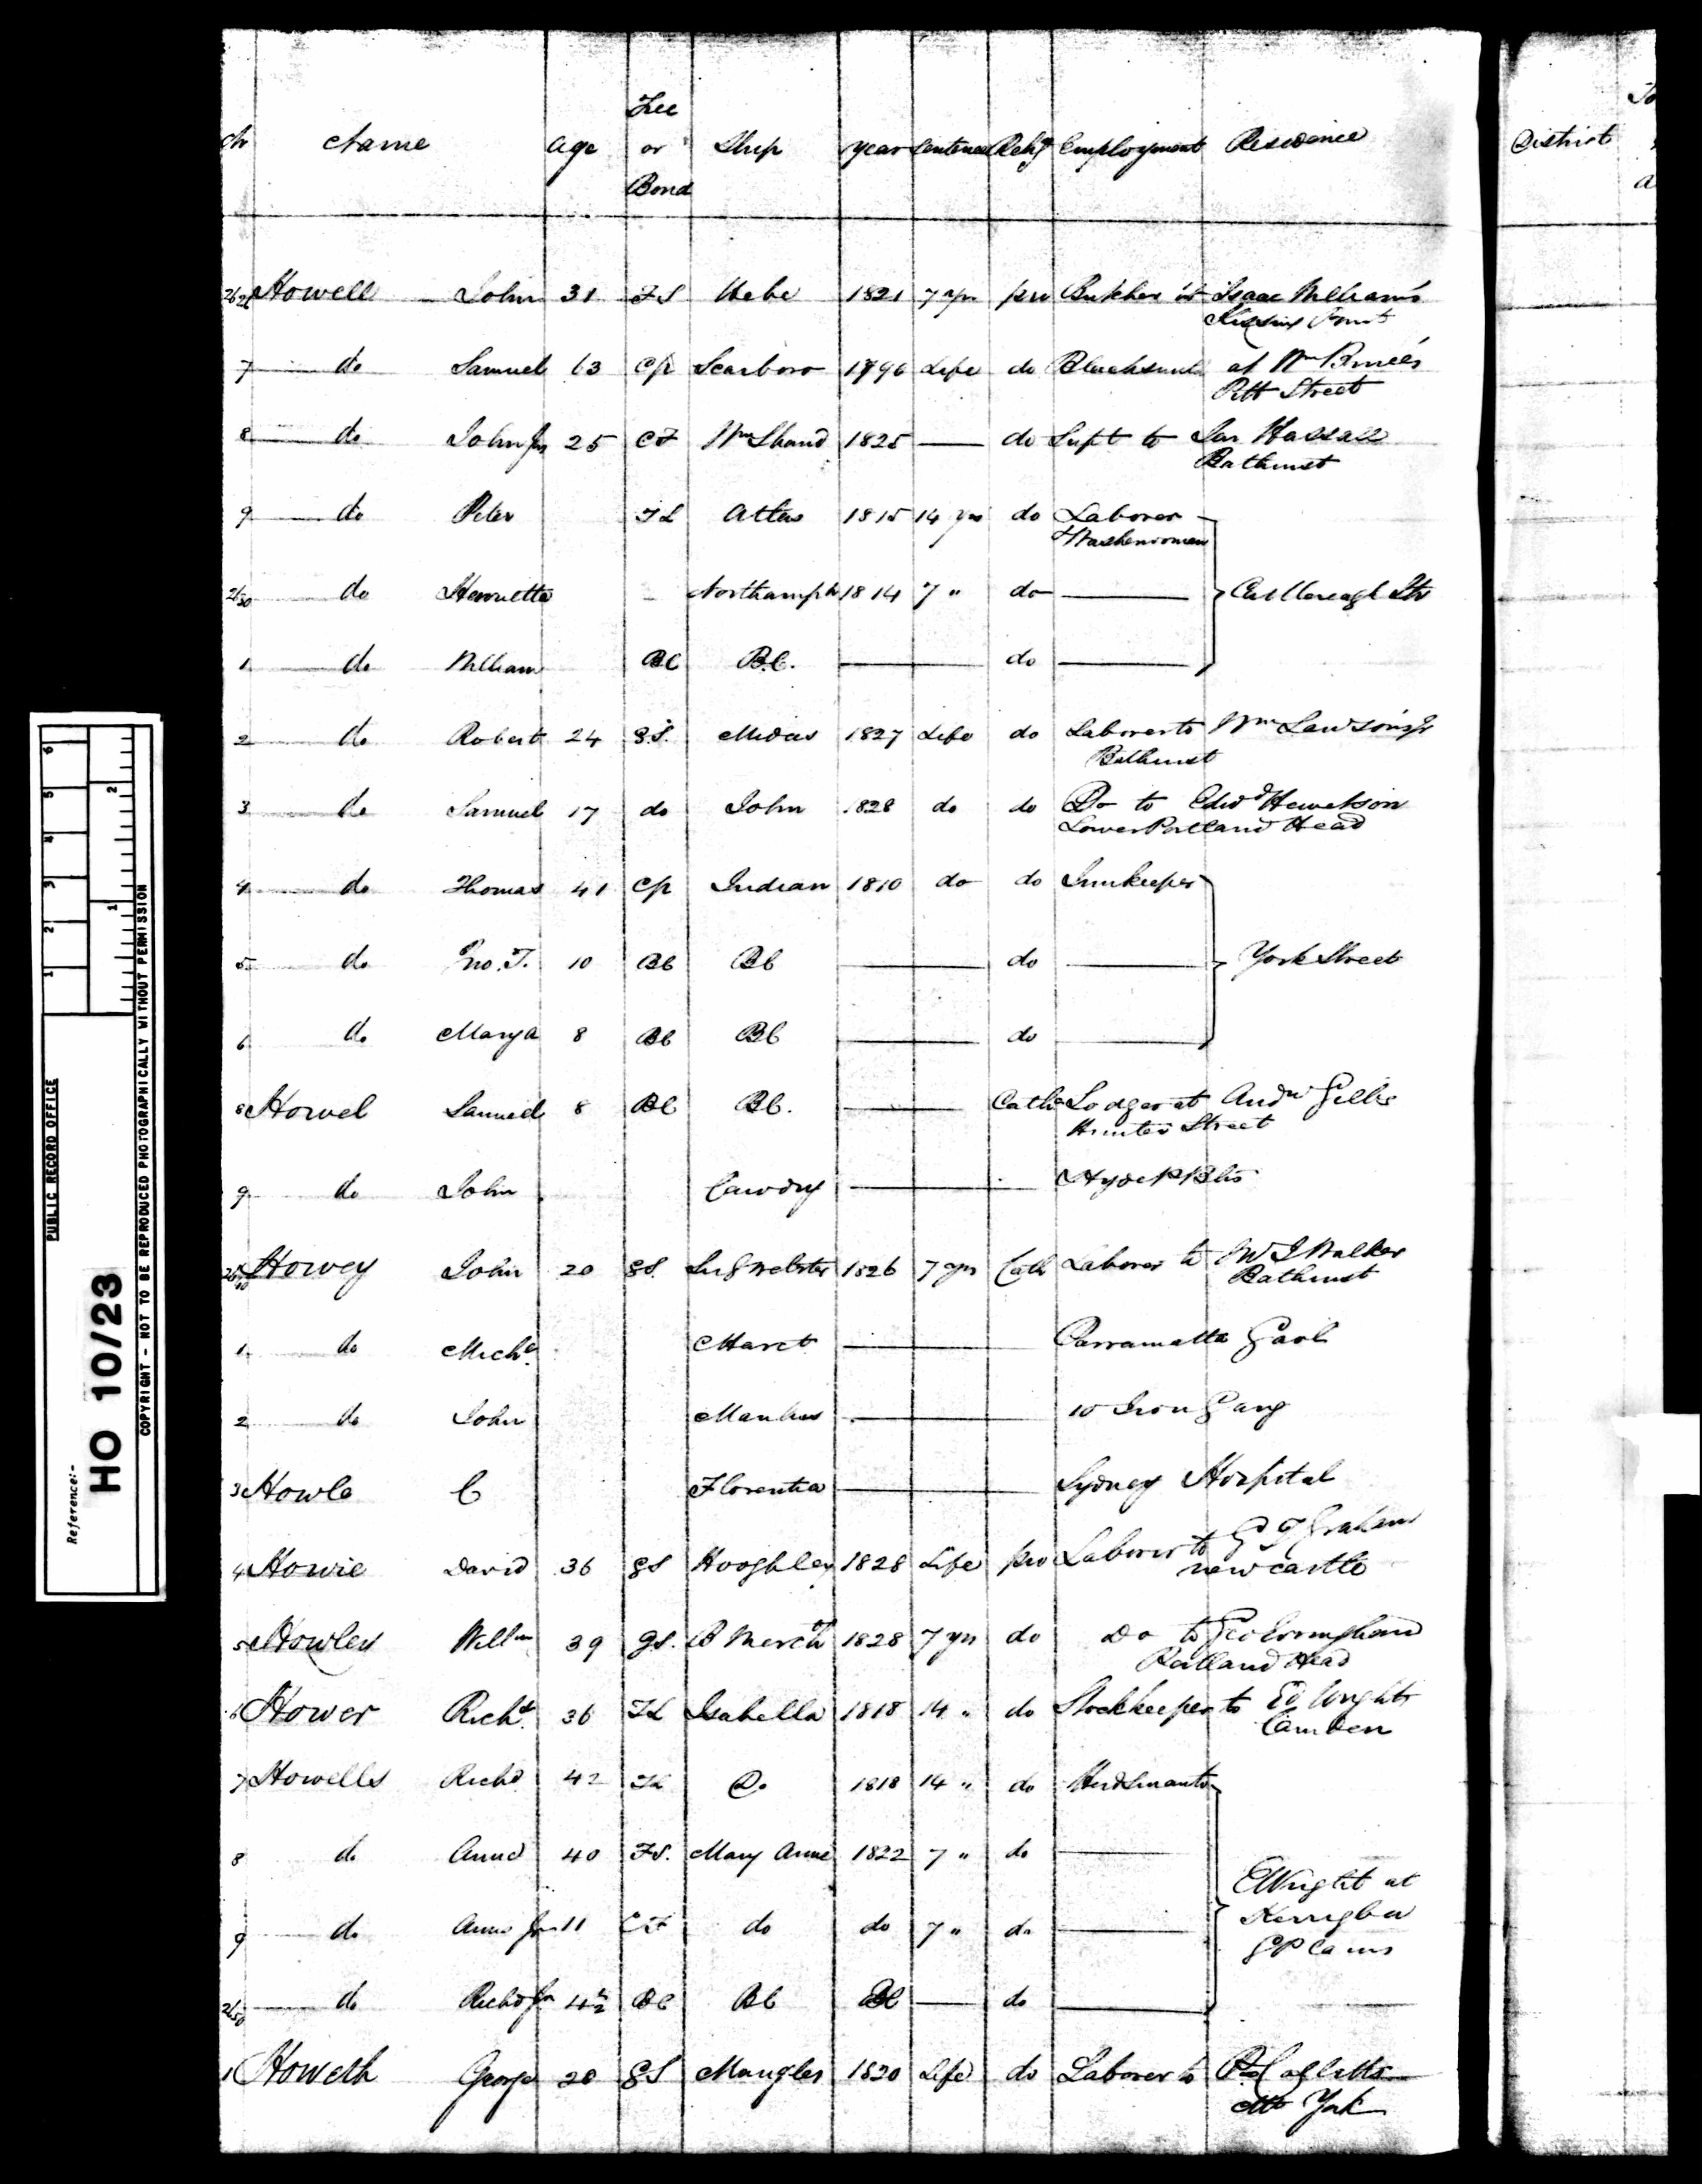 No Name Age Free or Bond Ship year Sentence Relig Employment Residence
District
Howell John 31 FS Hebe 1821 7 yrs pro Butcher at Isaac Williams
Kissing Point
7 do Samuel 63 CP Scarboro 1796 Life do Blacksmith at Wm
Pitt Street
8 do John Jnr 25 CF Wm Shand 1825 — do Supt to Hassall
Bathurst
9 do Peter TL Atlas 1815 14 yrs do Laborer
Washerwoman
do Henrietta Northampt 1814 7 " do — Castlereagh Str
1 do William BC B.C. — do —
2 do Robert 24 G.S. Midas 1827 Life do Laborer to Wm Lawson
Bathurst
3 do Samuel 17 do John 1828 do do Do to Edwd Hewetson
Lower Portland Head
4 do Thomas 41 CP Indian 1810 do do Innkeeper
5 do Jno. T. 10 BC BC — do — York Street
6 do Mary A 8 BC BC — do —
8 Howel Samuel 8 BC BC. — Cath Lodger at Andw Gillis
Hunter Street
9 do John — Hyde P Bks
Howey John 20 GS 1826 7 yrs Cath Laborer to Walker
Bathurst
1 do Michl — Parramatta Gaol
2 do John Manlius — 10 Iron Gang
3 Howle C Florentia — Sydney Hospital
4 Howie David 36 GS Hooghley 1828 Life pro Laborer to Graham
newcastle
5 Howles Willm 39 GS. B Merch 1828 7 yrs do Do to
Portland Head
6 Hower Richd. 36 TL Isabella 1818 14 " do Stockkeeper to Ed Wright
Camden
7 Howells Richd 42 TL Do 1818 14 " do Herdsman to
8 do Anne 40 FS. Mary Anne 1822 7 " do —
E Wright at
9 do Anne Jnr 11 CF do do 7 " do —
do Richd Jnr 4½ BC BC BC — do —
1 Howeth George 20 GS Mangles 1820 Life do Laborer to
York
PUBLIC RECORD OFFICE
Reference:-
HO 10/23
COPYRIGHT - NOT TO BE REPRODUCED PHOTOGRAPHICALLY WITHOUT PERMISSION
1 2 3 4 5 6
1 2